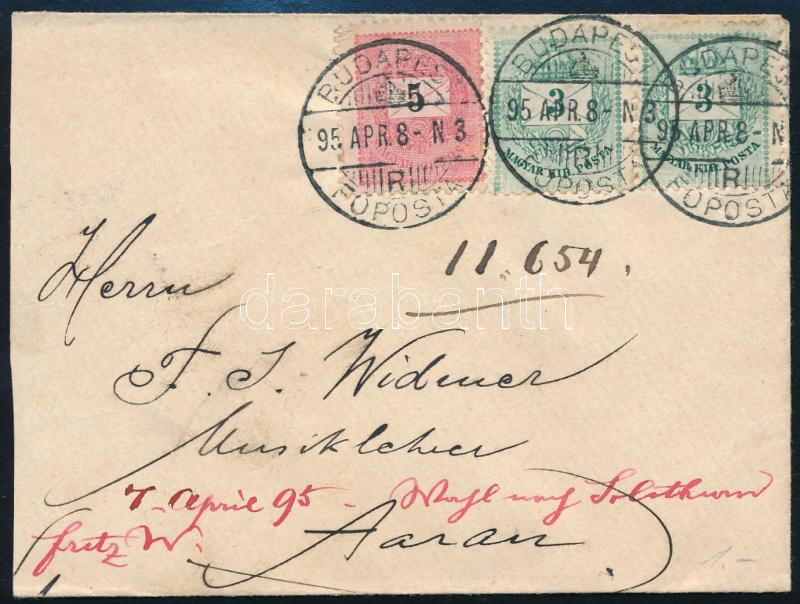 BUDAPEST BUDAPEST BUDAPEST
5 3 3
95 APR. 8 - N 3 95 APR. 8 - N 3 95 APR. 8 - N
MAGYAR KIR. POSTA MAGYAR KIR. POSTA
R R R
FŐPOSTA FŐPOSTA FŐPOSTA
11,654.
darabanth
Herrn
F. S. Widmer
Musiklehrer
7. April 95 - Wahl nach Solothurn
fritz W.
Aarau
1.-